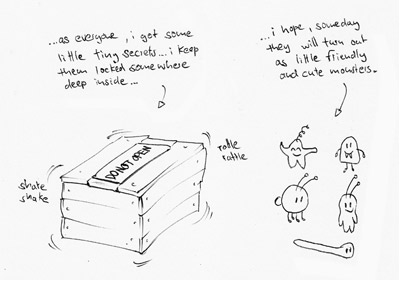 ...as everyone, i got some
little tiny secrets...i keep
them locked somewhere
deep inside...
DO NOT OPEN
shake
shake
rattle
rattle
...i hope, someday
they will turn out
as little friendly
and cute monsters.